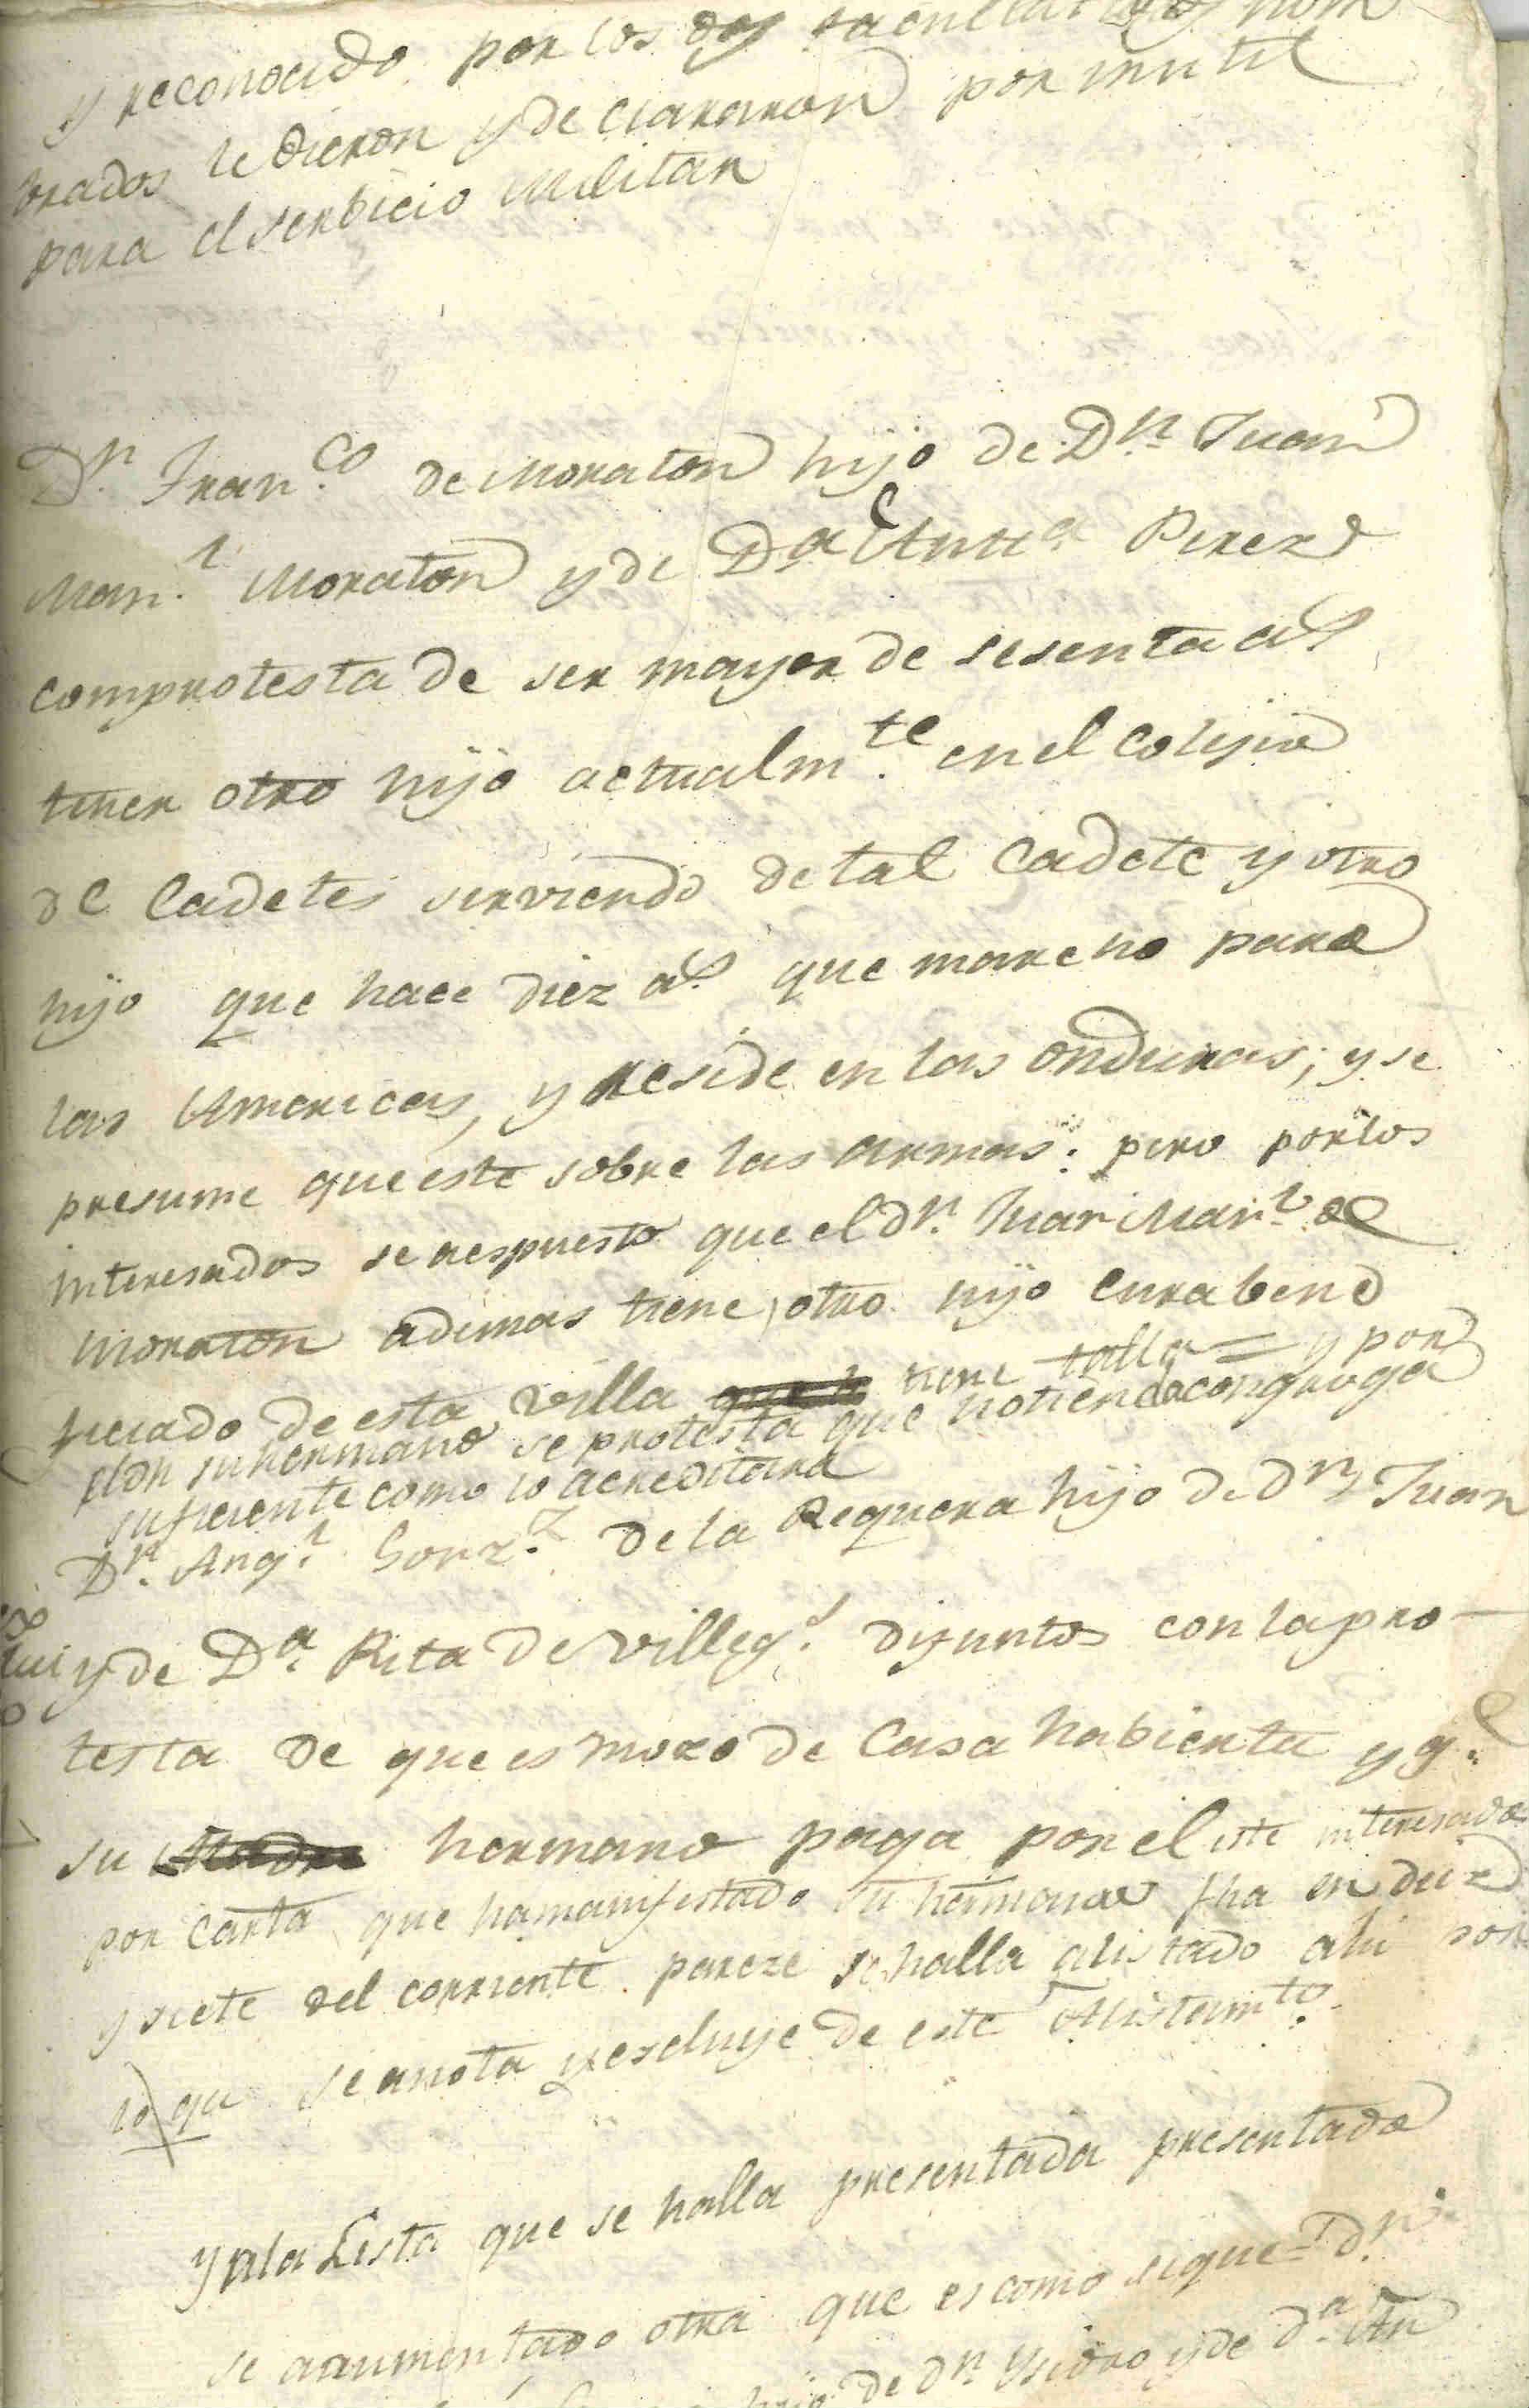 y reconocido por los dos facultativos nom
brados le dieron y declararon por inutil
para el serbicio Militar
Dn. Franco. de Moraton hijo de Dn. Juan
Manl. Moraton y de Da. Anta. Perez
comprotesta de ser mayor de sesenta as
tener otro hijo actualmte. en el colejio
de Cadetes sirviendo de tal Cadete y otro
hijo que hace diez as. que marcho para
las Americas, y reside en las onduras; y se
presume que este sobre las armas: pero por los
interesados se aespuesto que el dn. Juan Manl. de
Moraton ademas tiene otro hijo cura bene
ficiado de esta villa tiene talla = y por
el dn su hermano se protesta que no tiene congruga
suficiente como lo acreditara
Dn. Angl. Gonz. de la Reguera hijo de dn. Juan
y de Da. Rita de Villegs. difuntos con la pro-
testa de que es mozo de Casa habienta y q.e
su hermano paga por el este interesado
por carta que hamanifestado su hermano fha en diez
y siete del corriente pareze se halla alistado alli por
lo que se anota y escluye de este Alistamto.
Y a la Lista que se halla presentada presentada
se aaumentado otra que es como sigue = Dn.
hijo de dn. Ysidro y de da. An